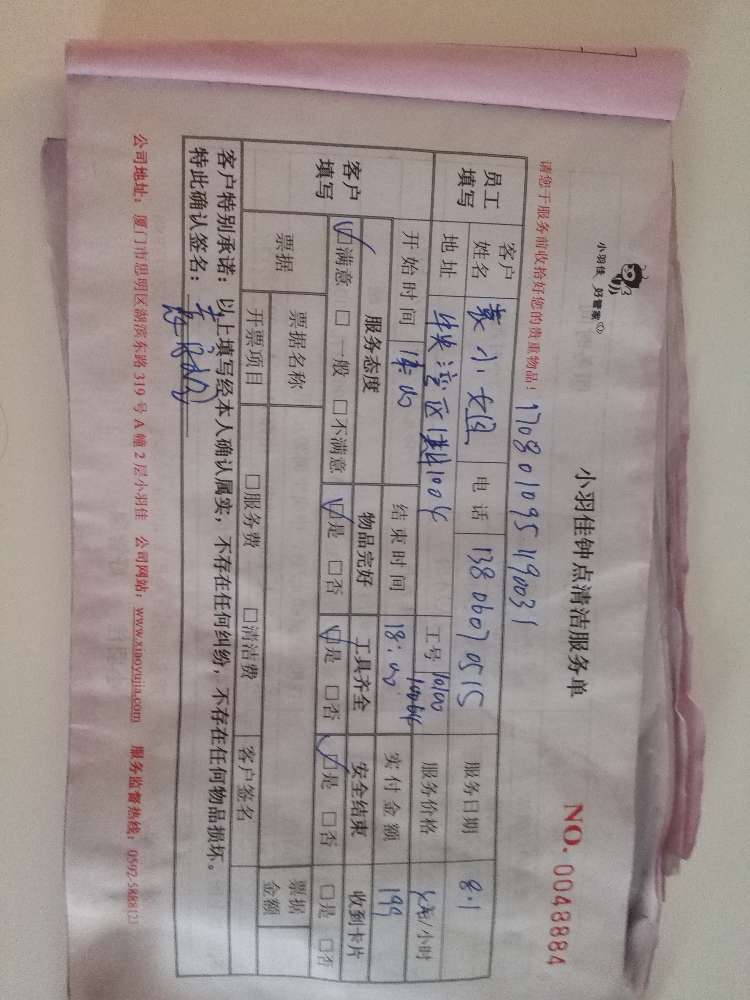 小羽佳 好管家
小羽佳钟点清洁服务单
NO. 0048884
请您于服务前收拾好您的贵重物品!
1708010951190031
员工填写 客户姓名 袁小姐 电话 13806070515 服务日期 8.1
地址 工号 10100 服务价格 /小时
客户填写 开始时间 结束时间 18:00 实付金额 199
服务态度 物品完好 工具齐全 安全结束 收到卡片
☑满意 □一般 □不满意 ☑是 □否 ☑是 □否 ☑是 □否 □是 □否
票据 票据名称 票据金额
开票项目 □服务费 □清洁费 客户签名
客户特别承诺:以上填写经本人确认属实,不存在任何纠纷,不存在任何物品损坏。
特此确认签名:
公司地址:厦门市思明区湖滨东路319号A幢2层小羽佳 公司网站:www.xiaoyujia.com 服务监督热线:0592-5888121